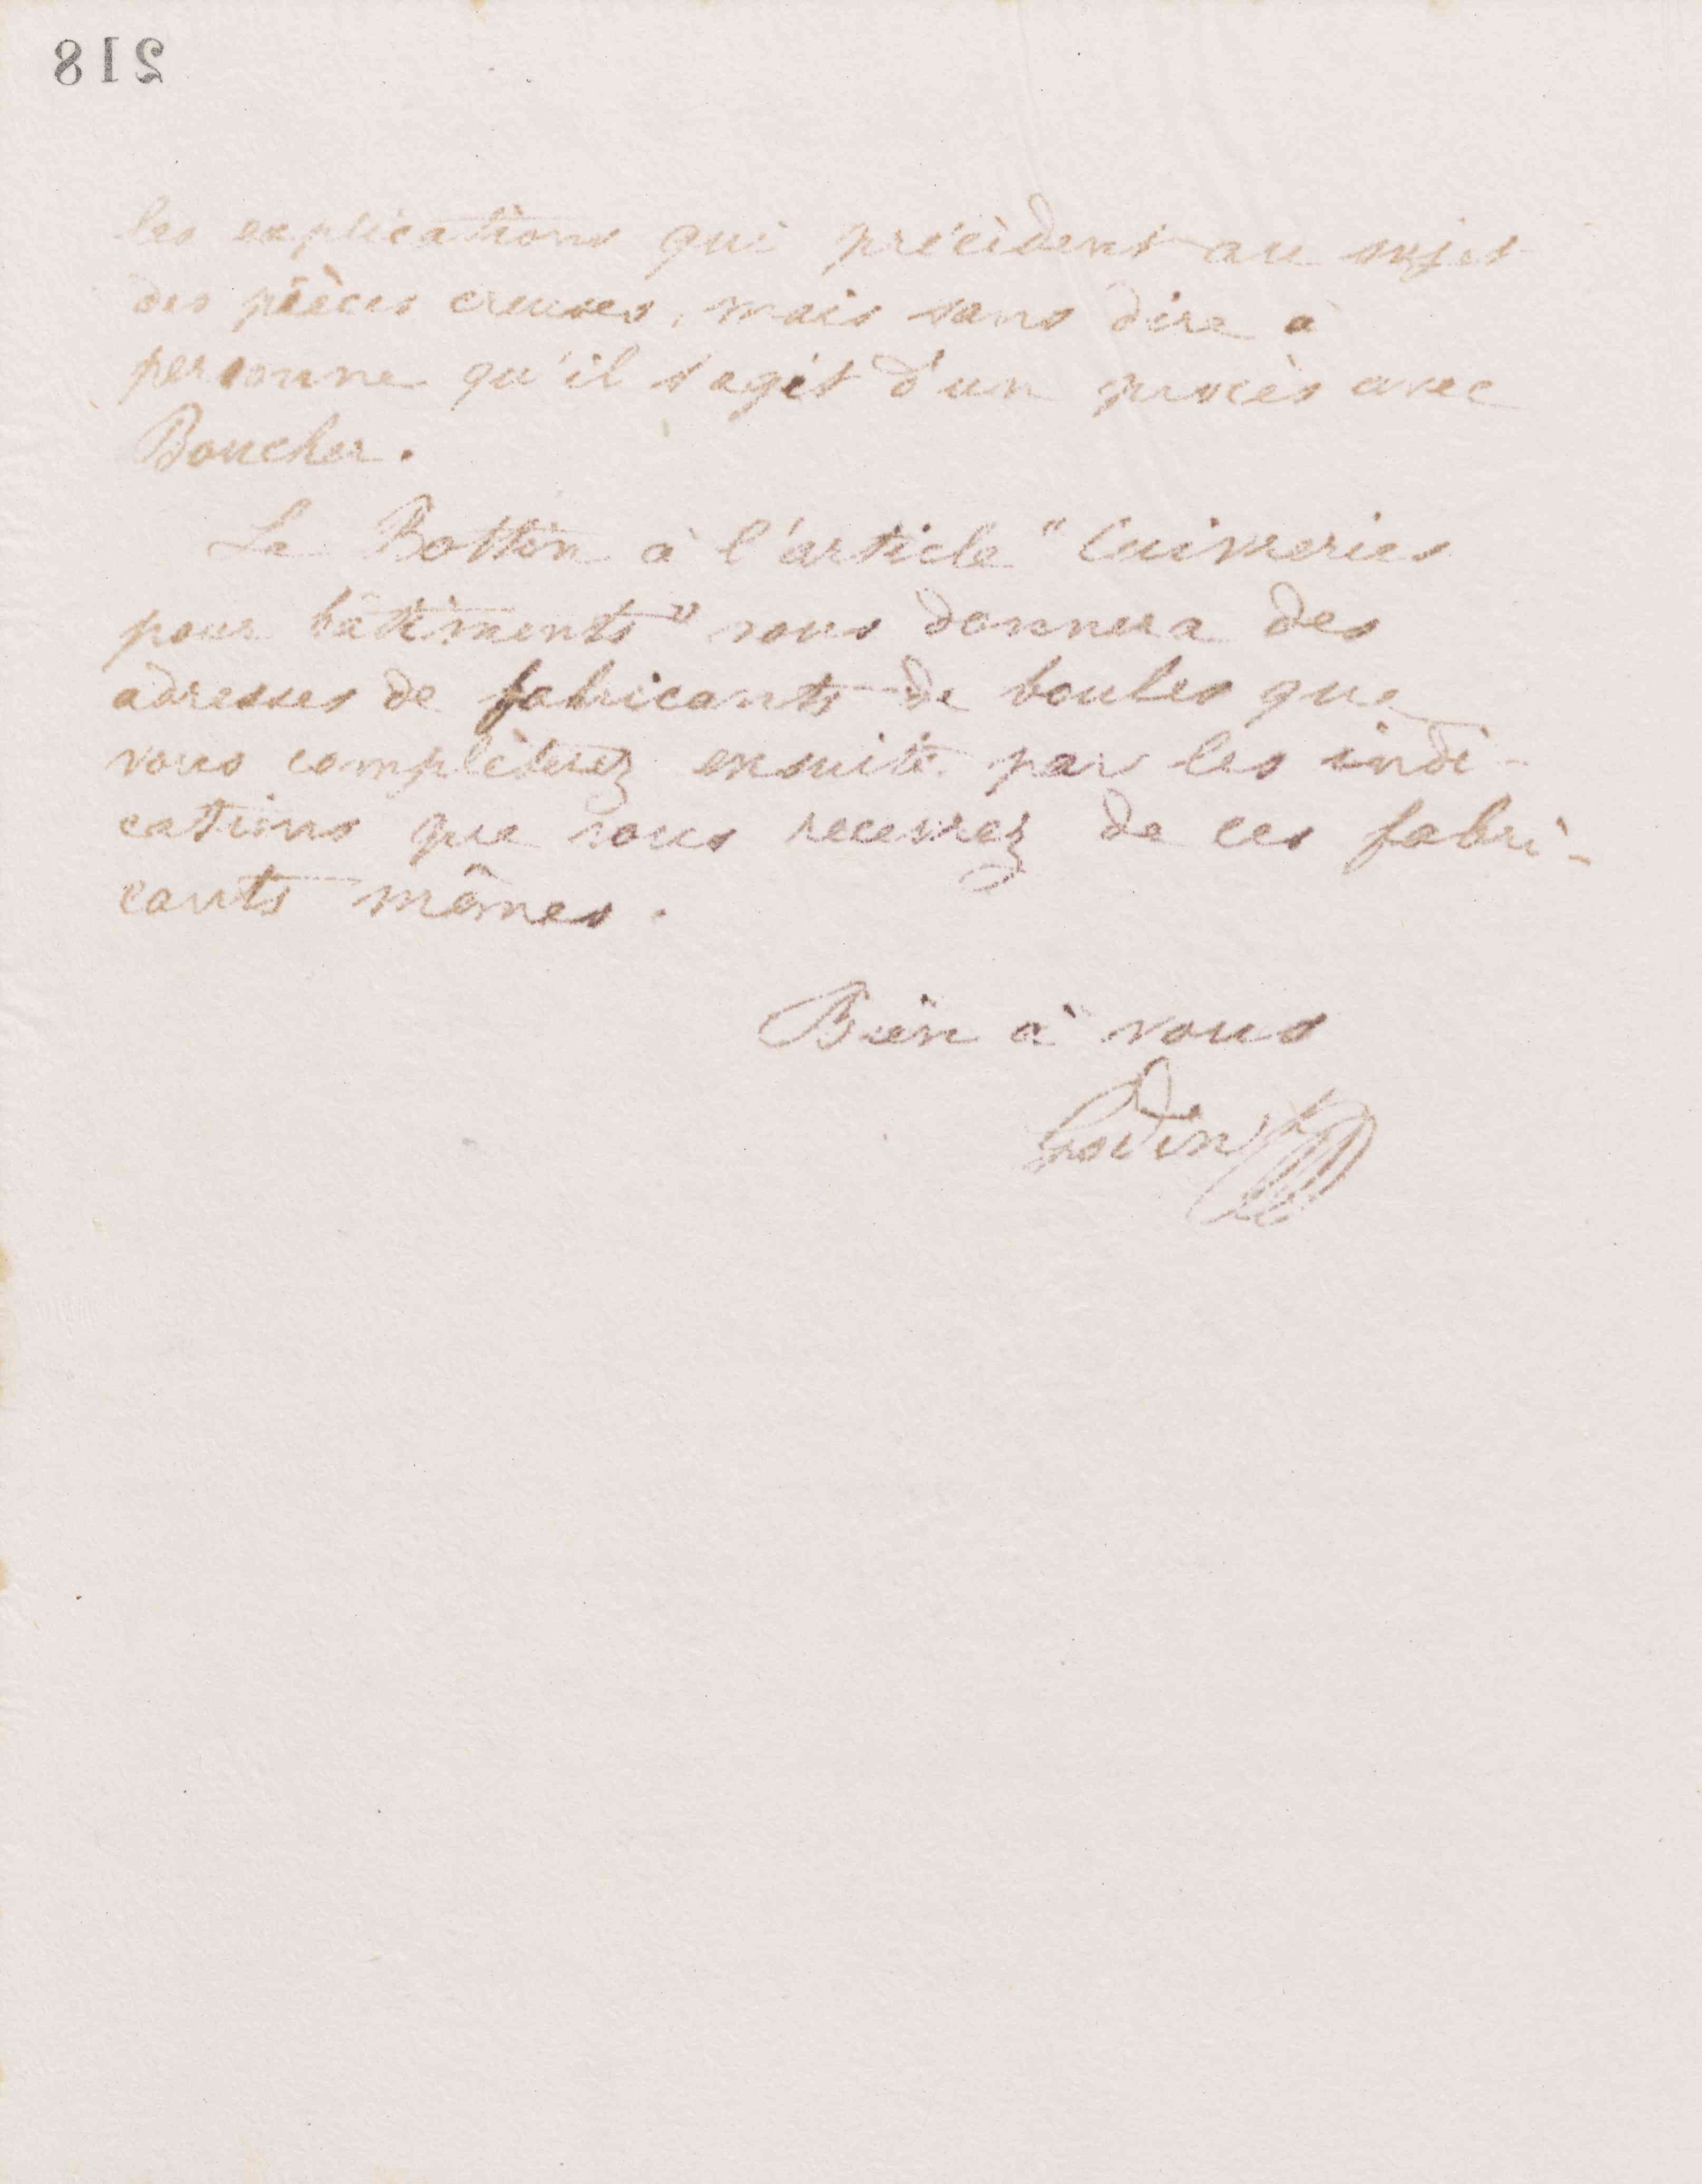 218
les explications qui précèdent au sujet
des pièces creuses, mais sans dire à
personne qu'il s'agit d'un procès avec
Boucher.
Le Bottin à l'article "Cuivreries
pour bâtiments" vous donnera des
adresses de fabricants de boules que
vous complèterez ensuite par les indi-
cations que vous recevrez de ces fabri-
cants mêmes.
Bien à vous
Godin